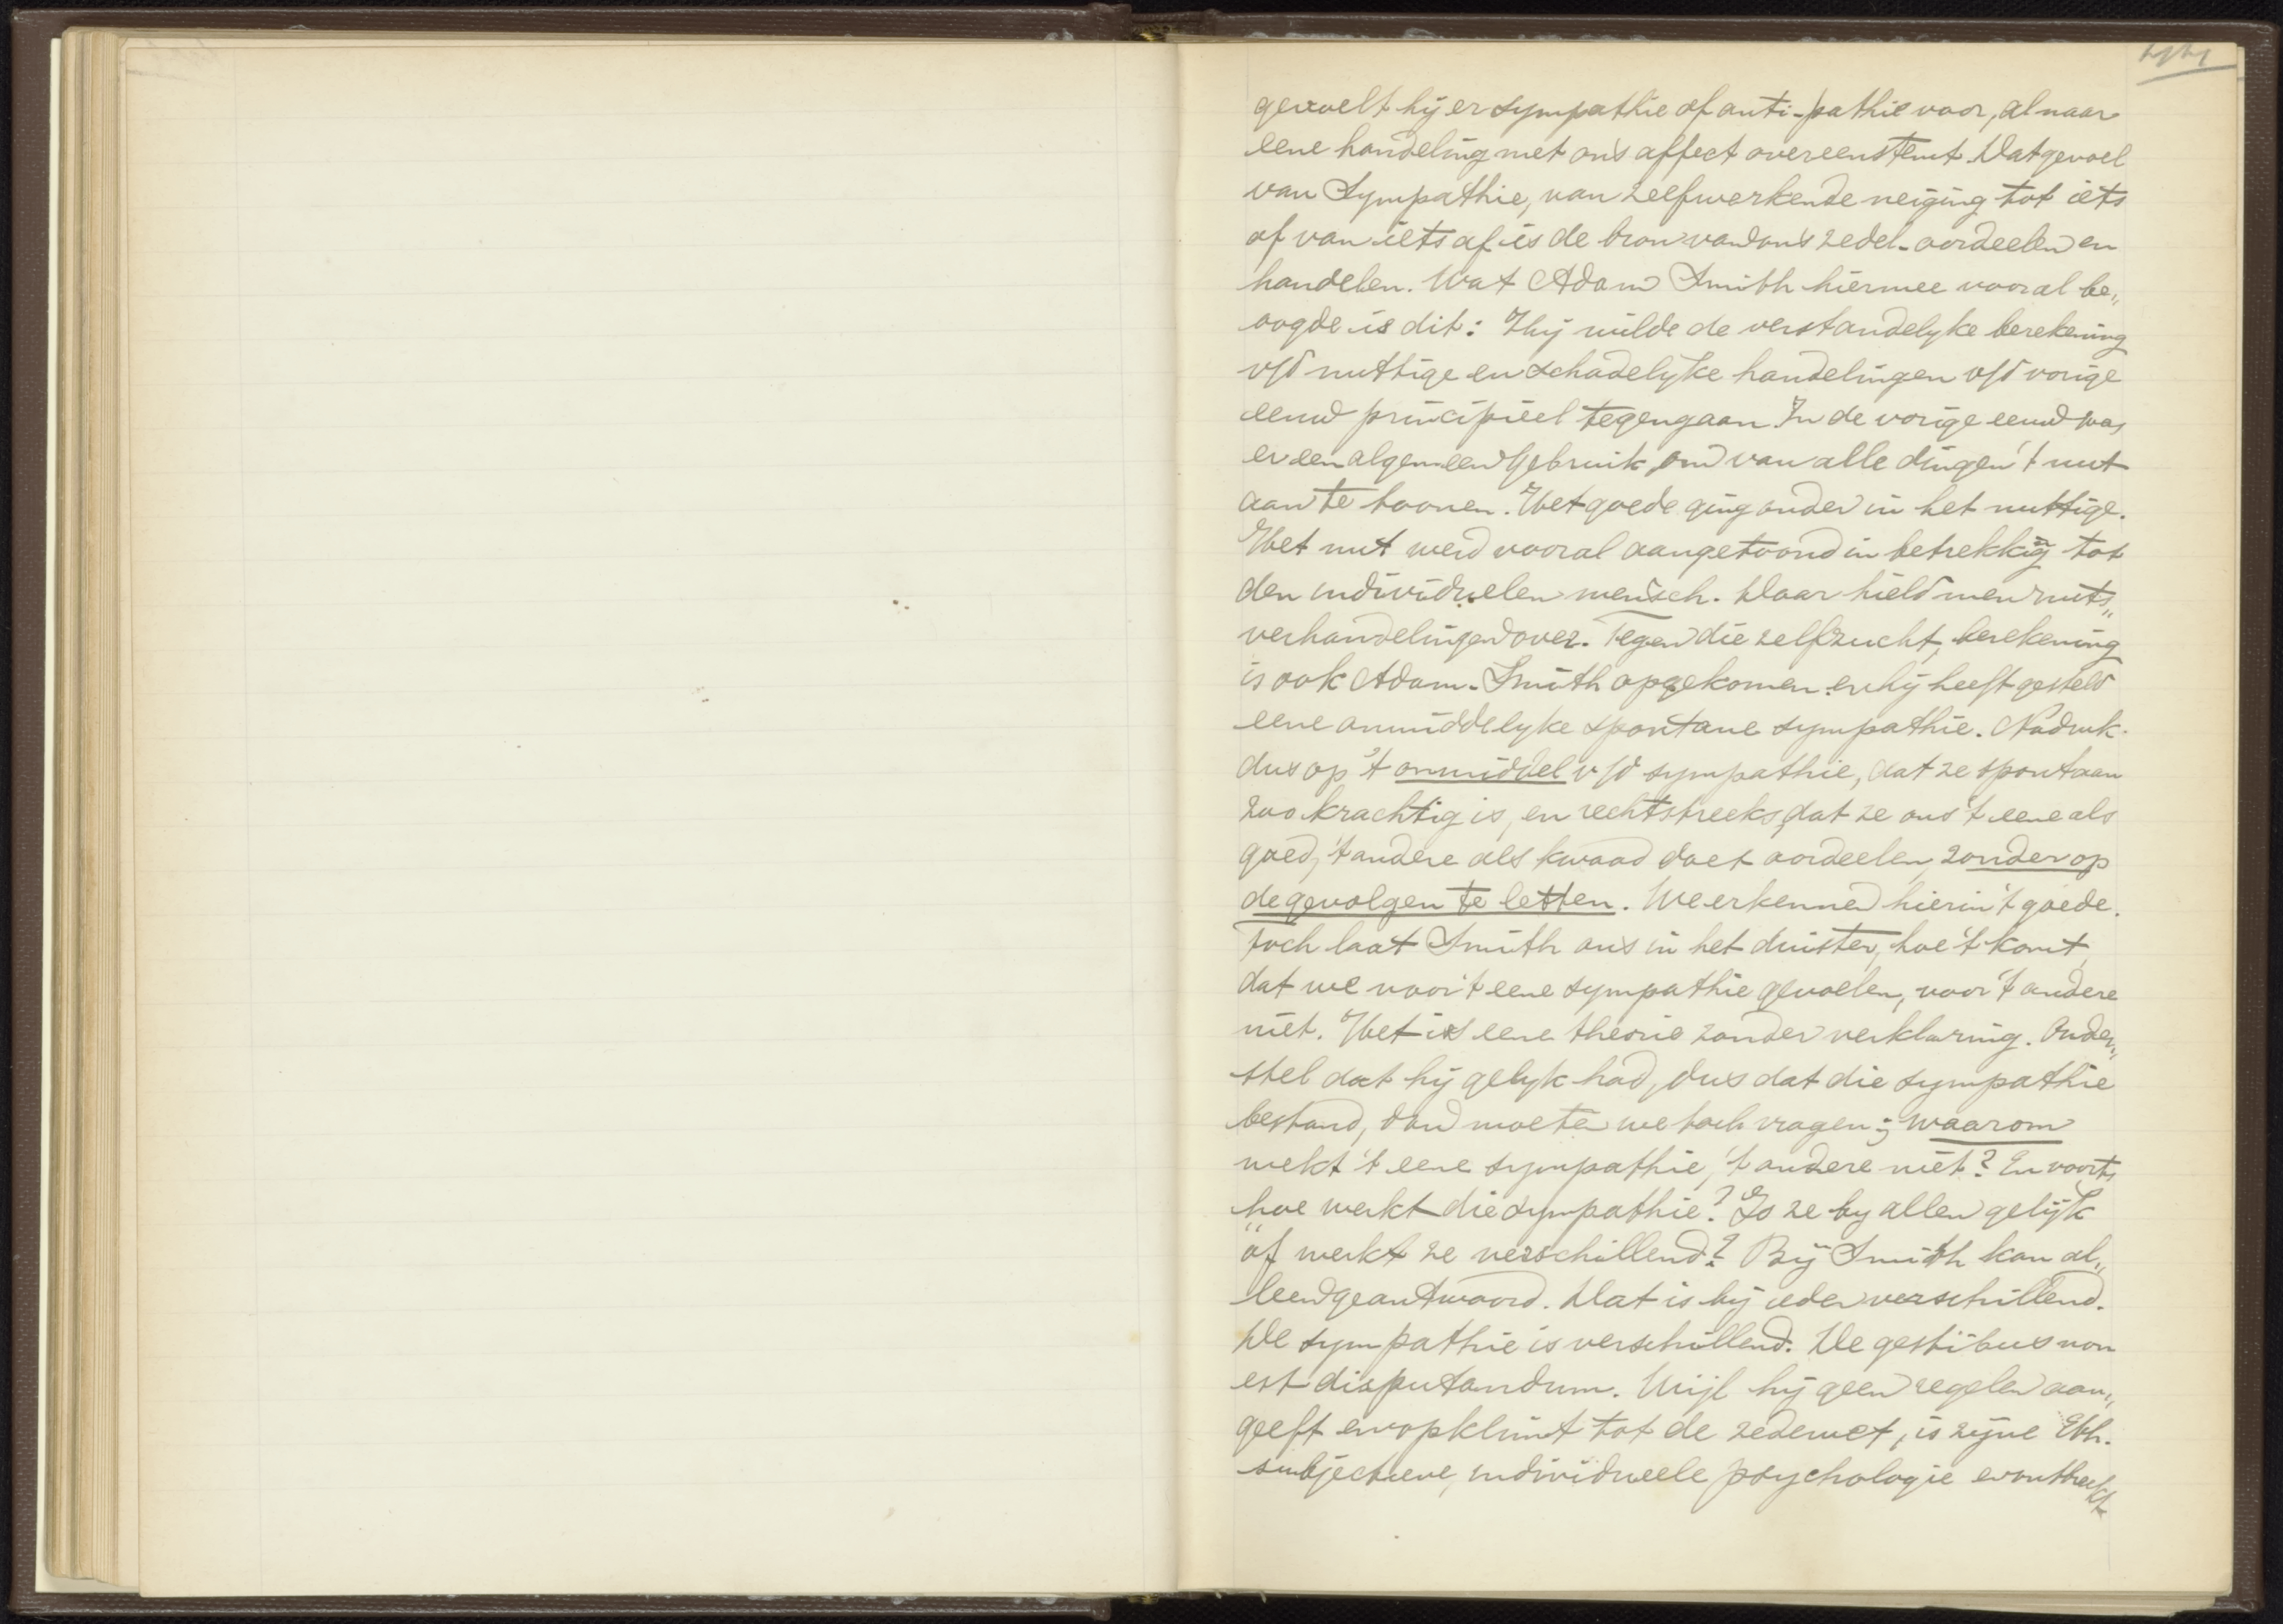 44
gevoelt hij er sympathie of anti-pathie voor, al naar
eene handeling met ons affect overeenstemt. Dat gevoel
van Sympathie, van zelfwerkende neiging tot iets
of van iets af is de bron van ons zedel-oordeelen en
handelen. Wat Adam Smith hiermee vooral be„
oogde is dit: Hij wilde de verstandelyke berekening
v/d nuttige en schadelyke handelingen v/d vorige
eeuw principieel tegengaan. In de vorige eeuw was
er een algemeen gebruik, om van alle dingen 't nut
aan te toonen. Het goede ging onder in het nuttige.
Het nut werd vooral aangetoond in betrekkig tot
den individuelen mensch. Daar hield men nuts„
verhandelingen over. Tegen die zelfzucht, berekening
is ook Adam-Smith opgekomen en hij heeft gesteld
eene onmiddelyke spontane sympathie. Nadruk
dus op 't onmiddel v/d sympathie, dat ze spontaan
zoo krachtig is, en rechtstreeks, dat ze ons 't eene als
goed, 't andere als kwaad doet oordeelen, zonder op
de gevolgen te letten. We erkennen hierin 't goede.
Toch laat Smith ons in het duister, hoe 't komt,
dat we voor 't eene sympathie gevoelen, voor 't andere
niet. Het is eene theorie zonder verklaring. Onder„
stel dat hij gelyk had, dus dat die sympathie
bestond, dan moeten we toch vragen: waarom
wekt 't eene sympathie, 't andere niet? En voorts
hoe werkt die sympathie? Is ze by allen gelijk
òf werkt ze verschillend? Bij Smith kan al„
leen geantwoord. Dat is bij ieder verschillend.
De sympathie is verschillend. De gestibus non
est disputandum. Wijl hij geen regelen aan„
geeft en opklimt tot de zedewet, is zijne Eth.
subjectieve, individueele psychologie en ontbreekt